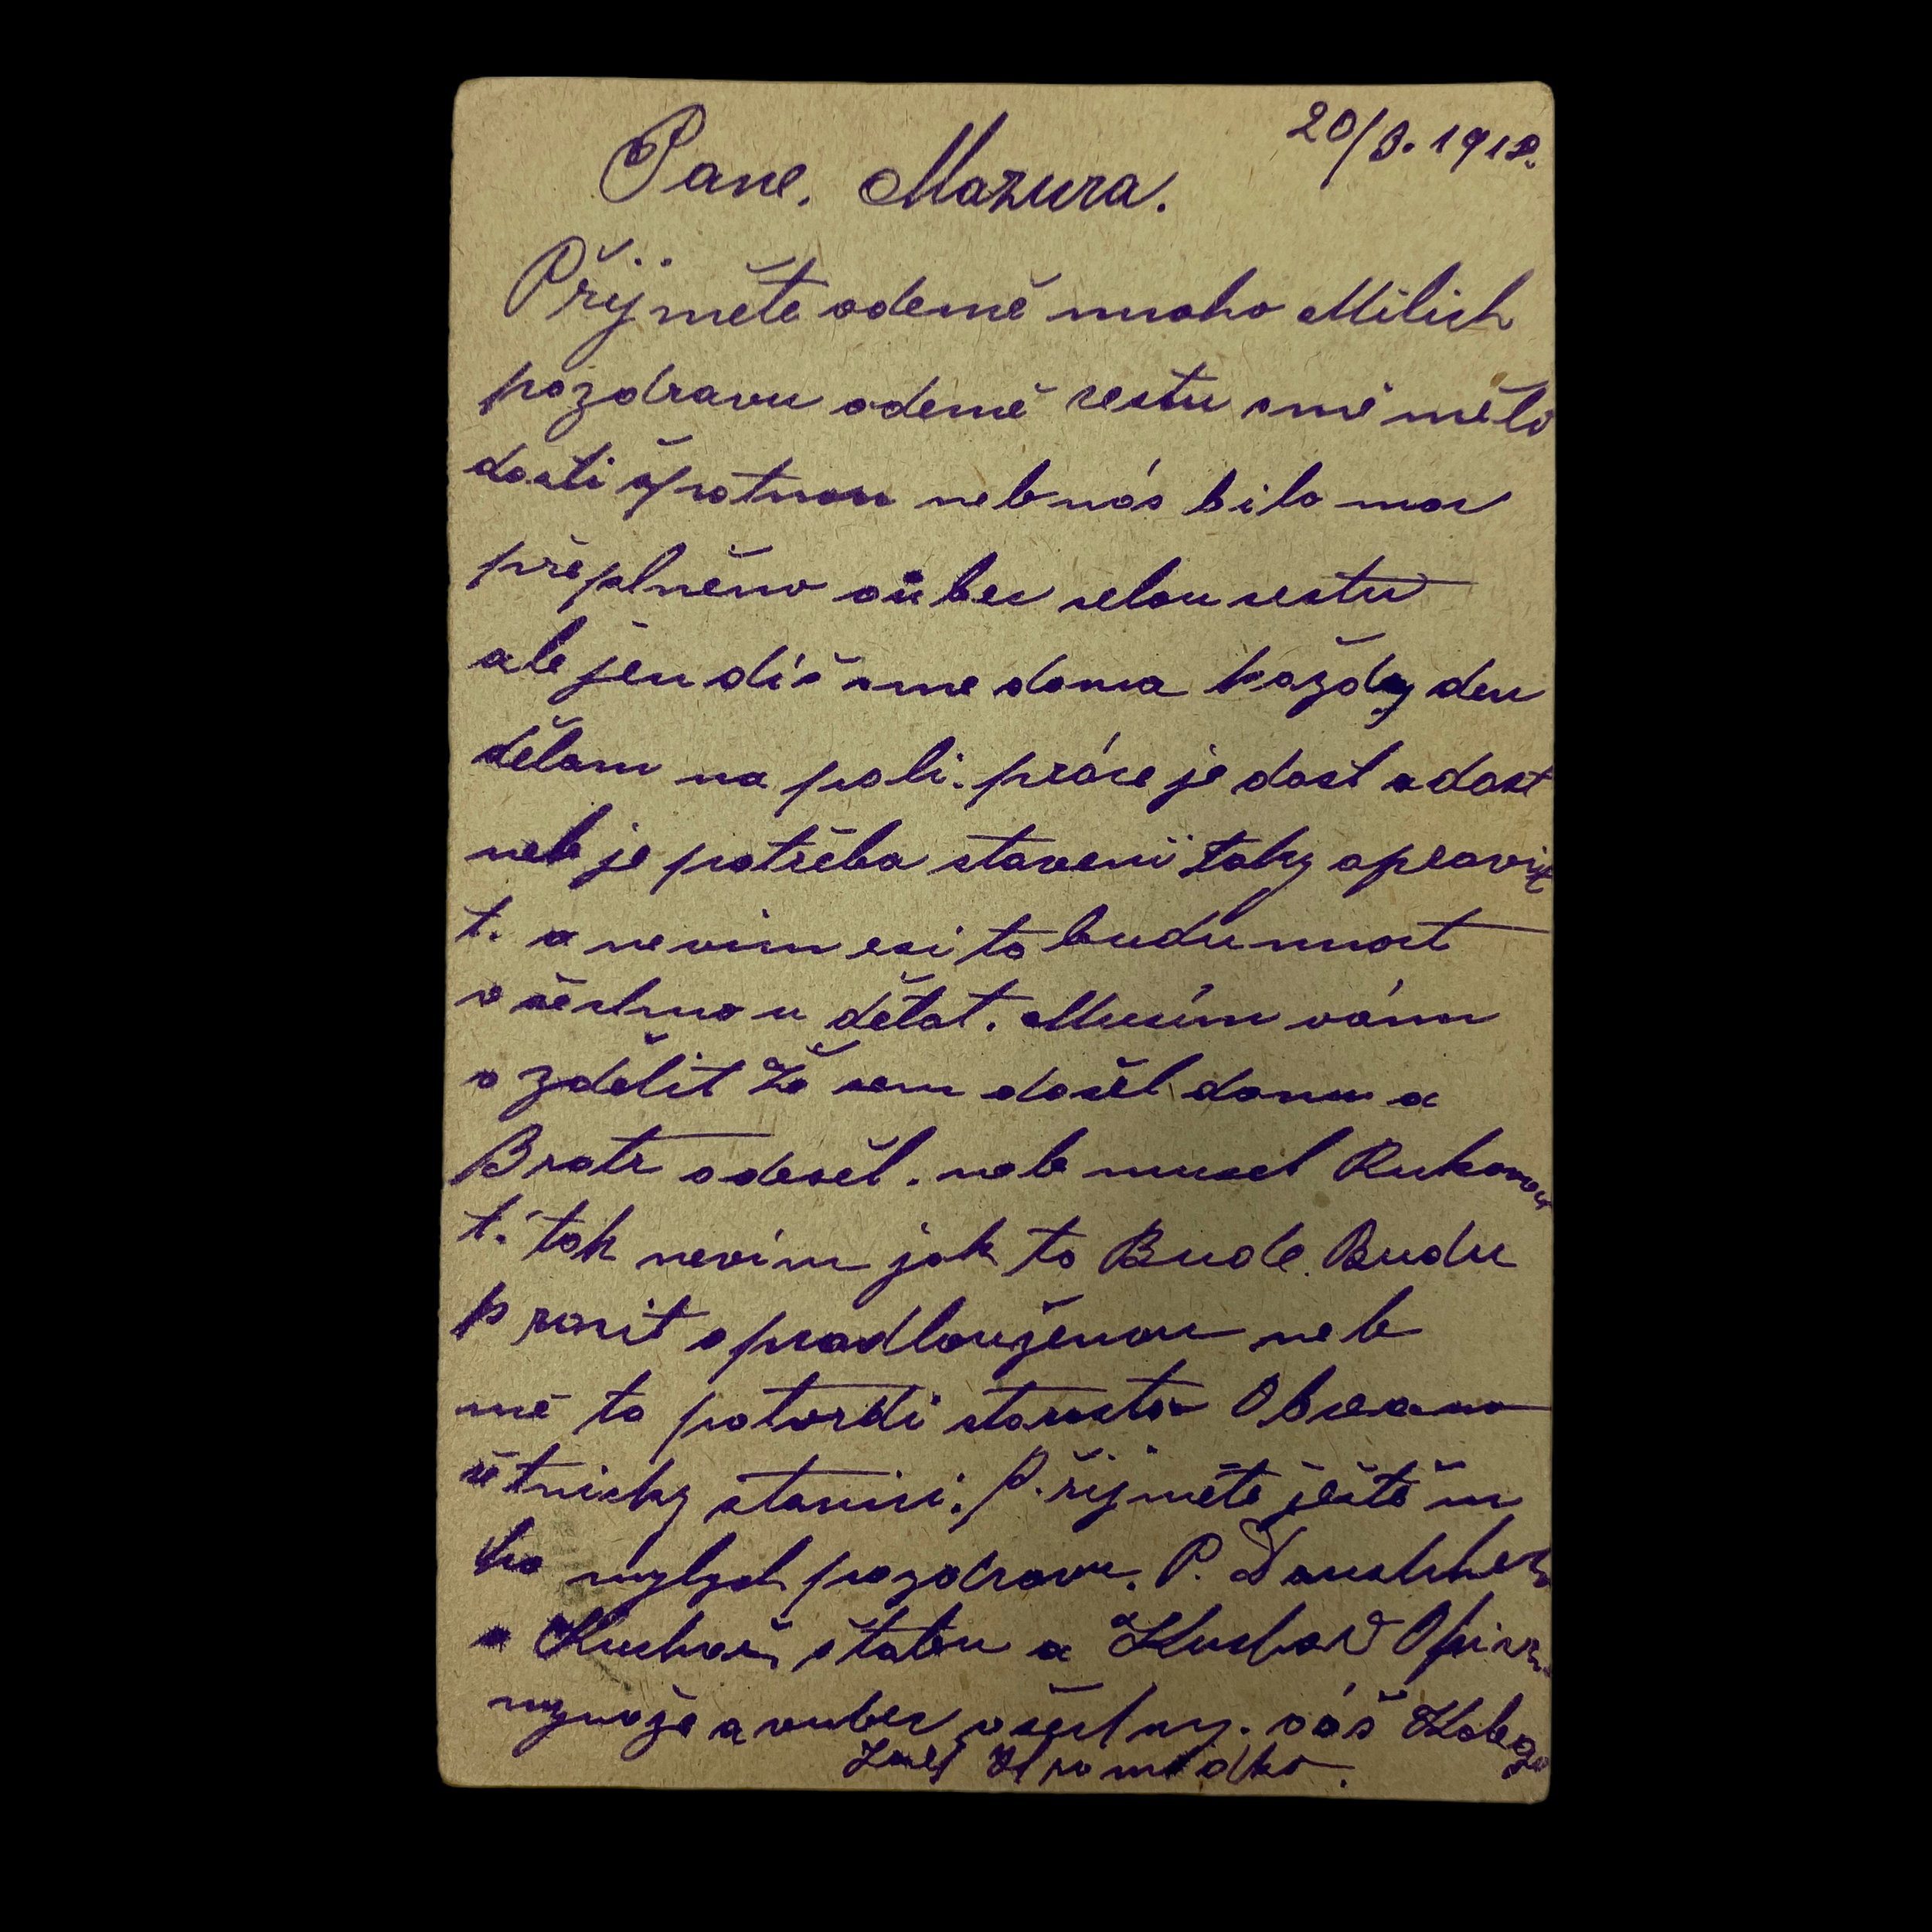 20/3. 1918.
Pane. Mazura.
Přijměte odemě mnoho Milich
pozdravu odemě cestu smě měli
dosti špatnou neb nás bilo moc
přeplněno vůbec celou cestu
ale jen diš sme doma každy den
dělam na poli. práce je dost a dost
neb je potřeba staveni taky opravi
t. a nevim esi to budu moct
všechno u dělat. Musím vám
o zdělit že sem došel domu a
Bratr odešel. neb musel Rukova
t. tak nevím jak to Bude. Budu
prosit o prodloužeňou neb
mě to potvrdi starosta Obce a
četnicky stanici. Přijměte ještě m
ho mylych pozdravu. P.
a Kuchař štabu a Kuchař
mynaže a vubec všechny. váš Kolega
Josef Hromádko.